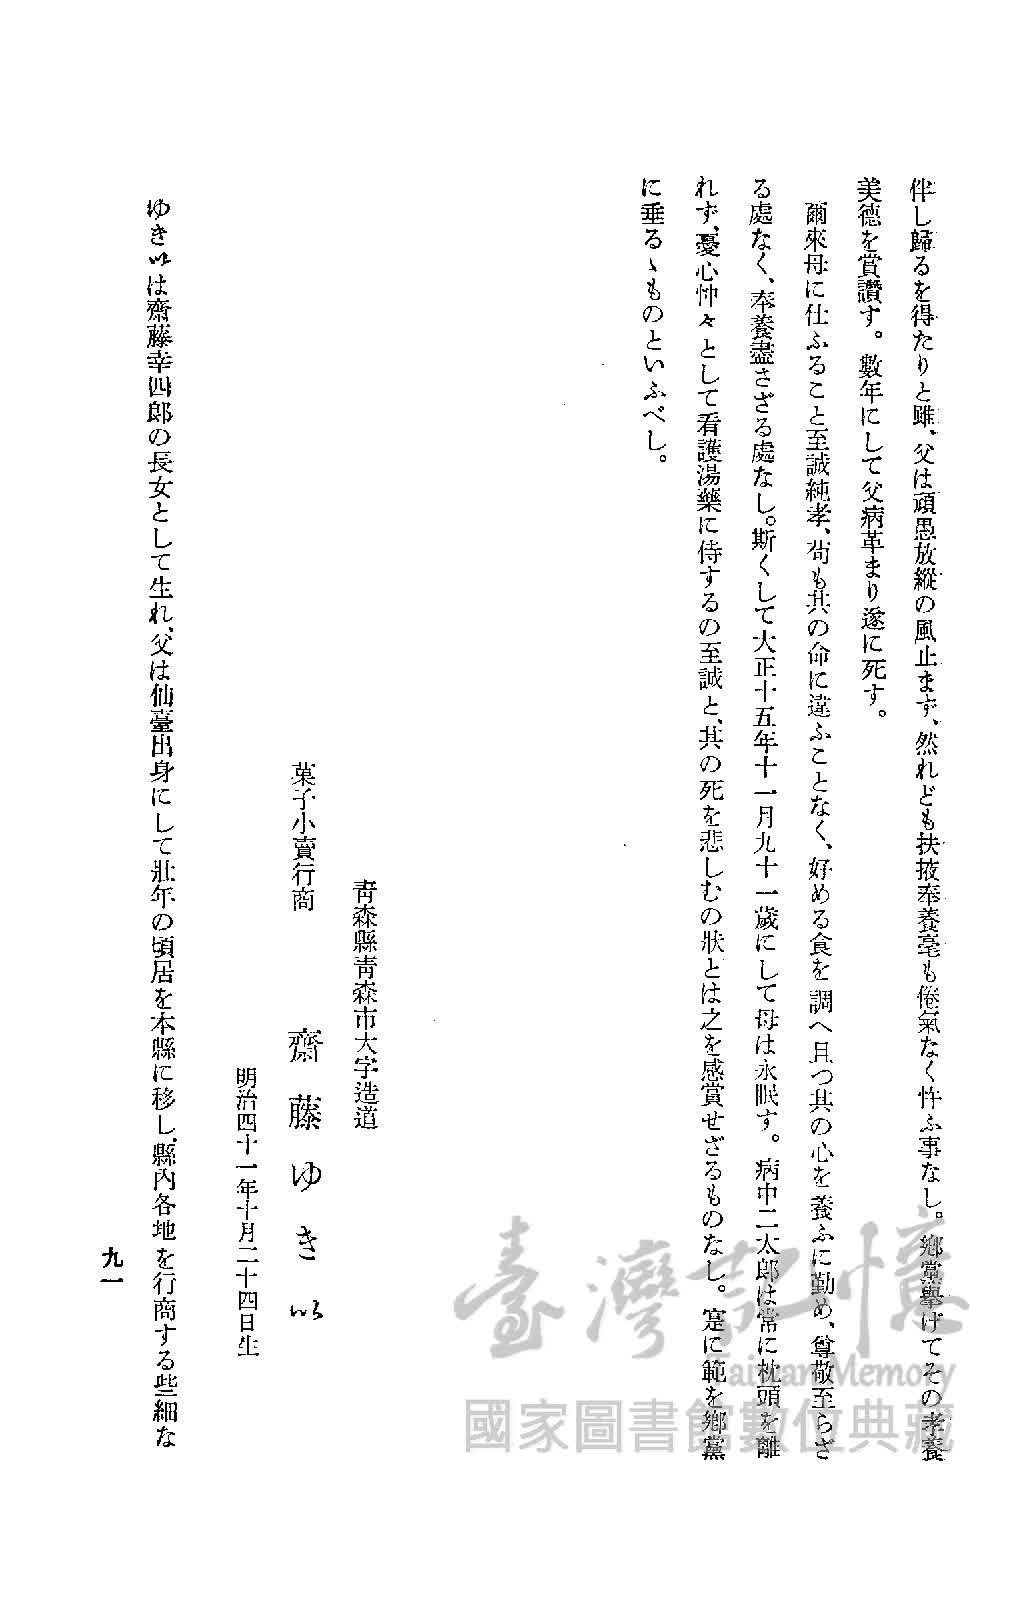 伴し歸るを得たりと雖、父は頑愚放縱の風止まず、然れども扶掖奉養毫も倦氣なく忤ふ事なし。鄉黨擧げてその孝養
美德を賞讚す。數年にして父病革まり遂に死す。
爾來母に仕ふること至誠純孝、苟も其の命に違ふことなく、好める食を調へ且つ其の心を養ふに勤め、尊敬至らざ
る處なく、奉養盡さざる處なし。斯くして大正十五年十一月九十一歲にして母は永眠す。病中二太郎は常に枕頭を離
れず、憂心忡々として看護湯藥に侍するの至誠と、其の死を悲しむの狀とは之を感賞せざるものなし。寔に範を鄉黨
に垂るゝものといふべし。
靑森縣靑森市大字造道
菓子小賣行商
齋藤ゆきい
明治四十一年十月二十四日生
ゆきいは齋藤幸四郞の長女として生れ、父は仙臺出身にして壯年の頃居を本縣に移し、縣內各地を行商する些細な
九一
臺灣記憶
Taiwan Memory
國家圖書館數位典藏